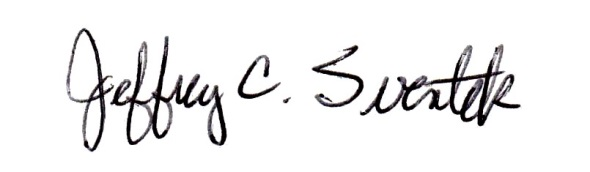 Jeffrey C. Sventek